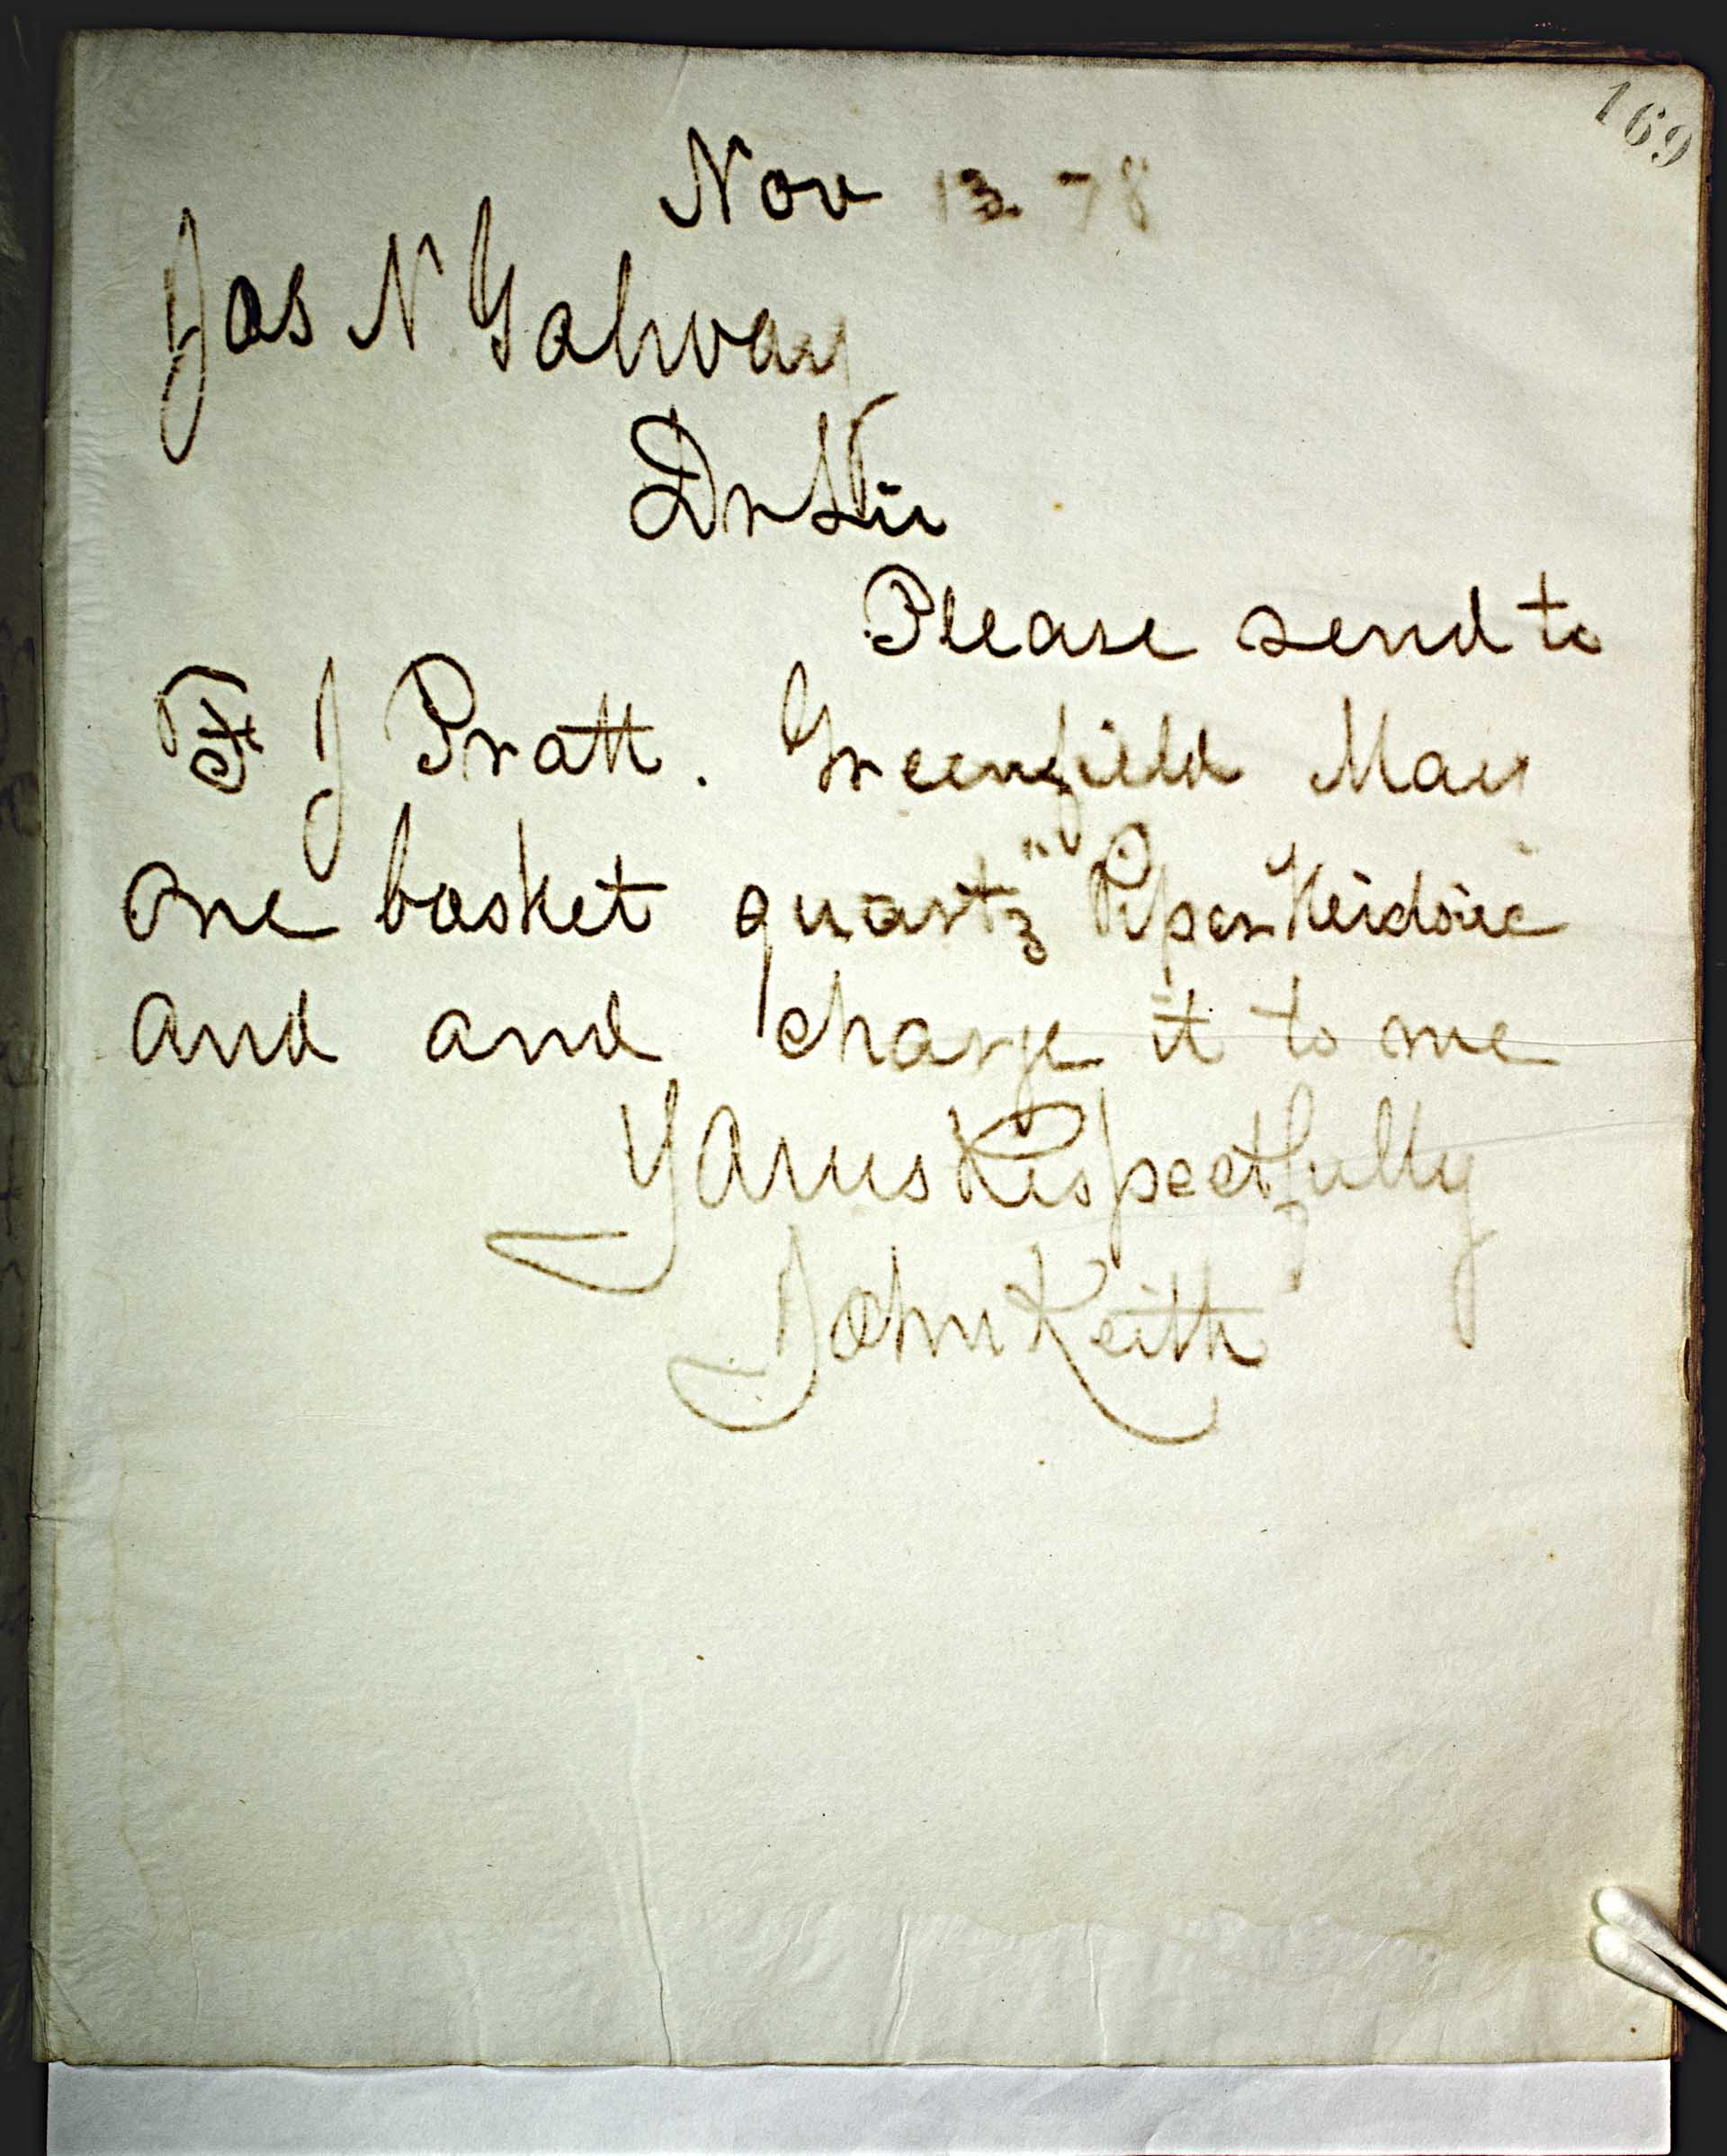 169
Nov 13 - 78
Jas N Galway
Dr Sir
Please send to
F J Pratt. Greenfield Mass
One basket quarts "Piper Heidsic"
and and charge it to me
Yours Respectfully
John Keith